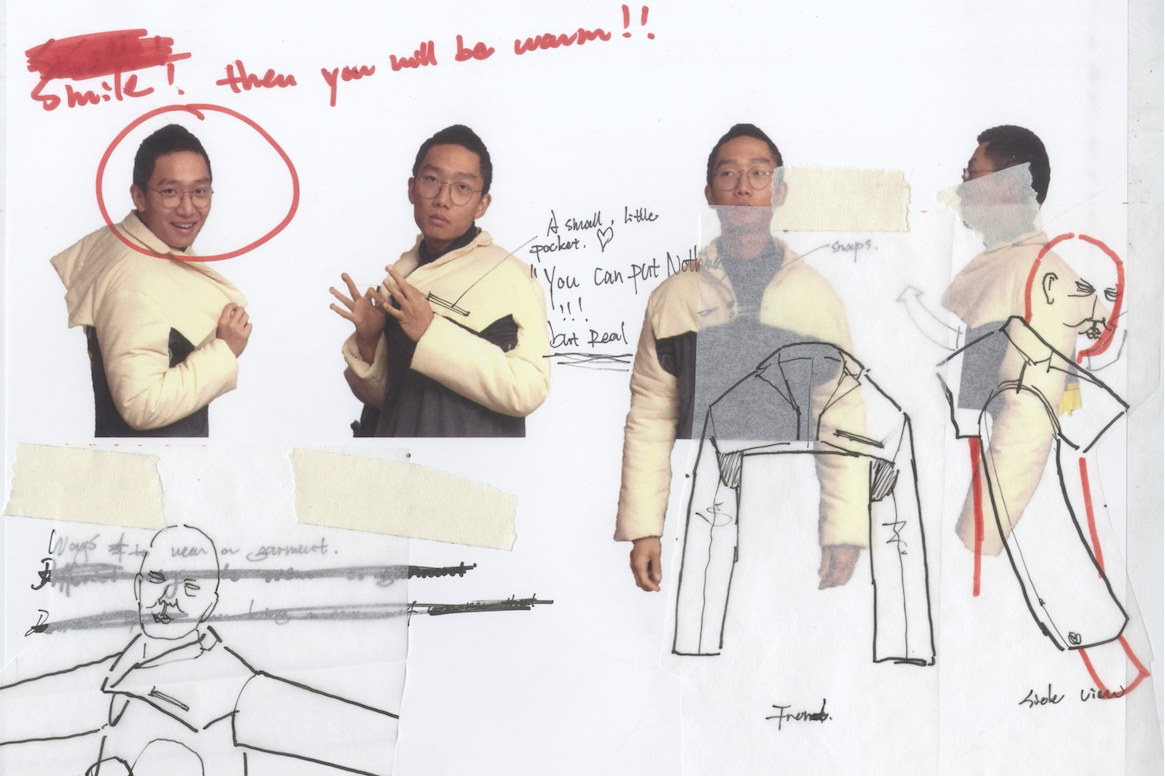 Smile! then you will be warm!!
A small, little
pocket. ♡
"You can put Noth
!!!
but Real
snaps.
Ways to wear a garment.
Front.
Side view